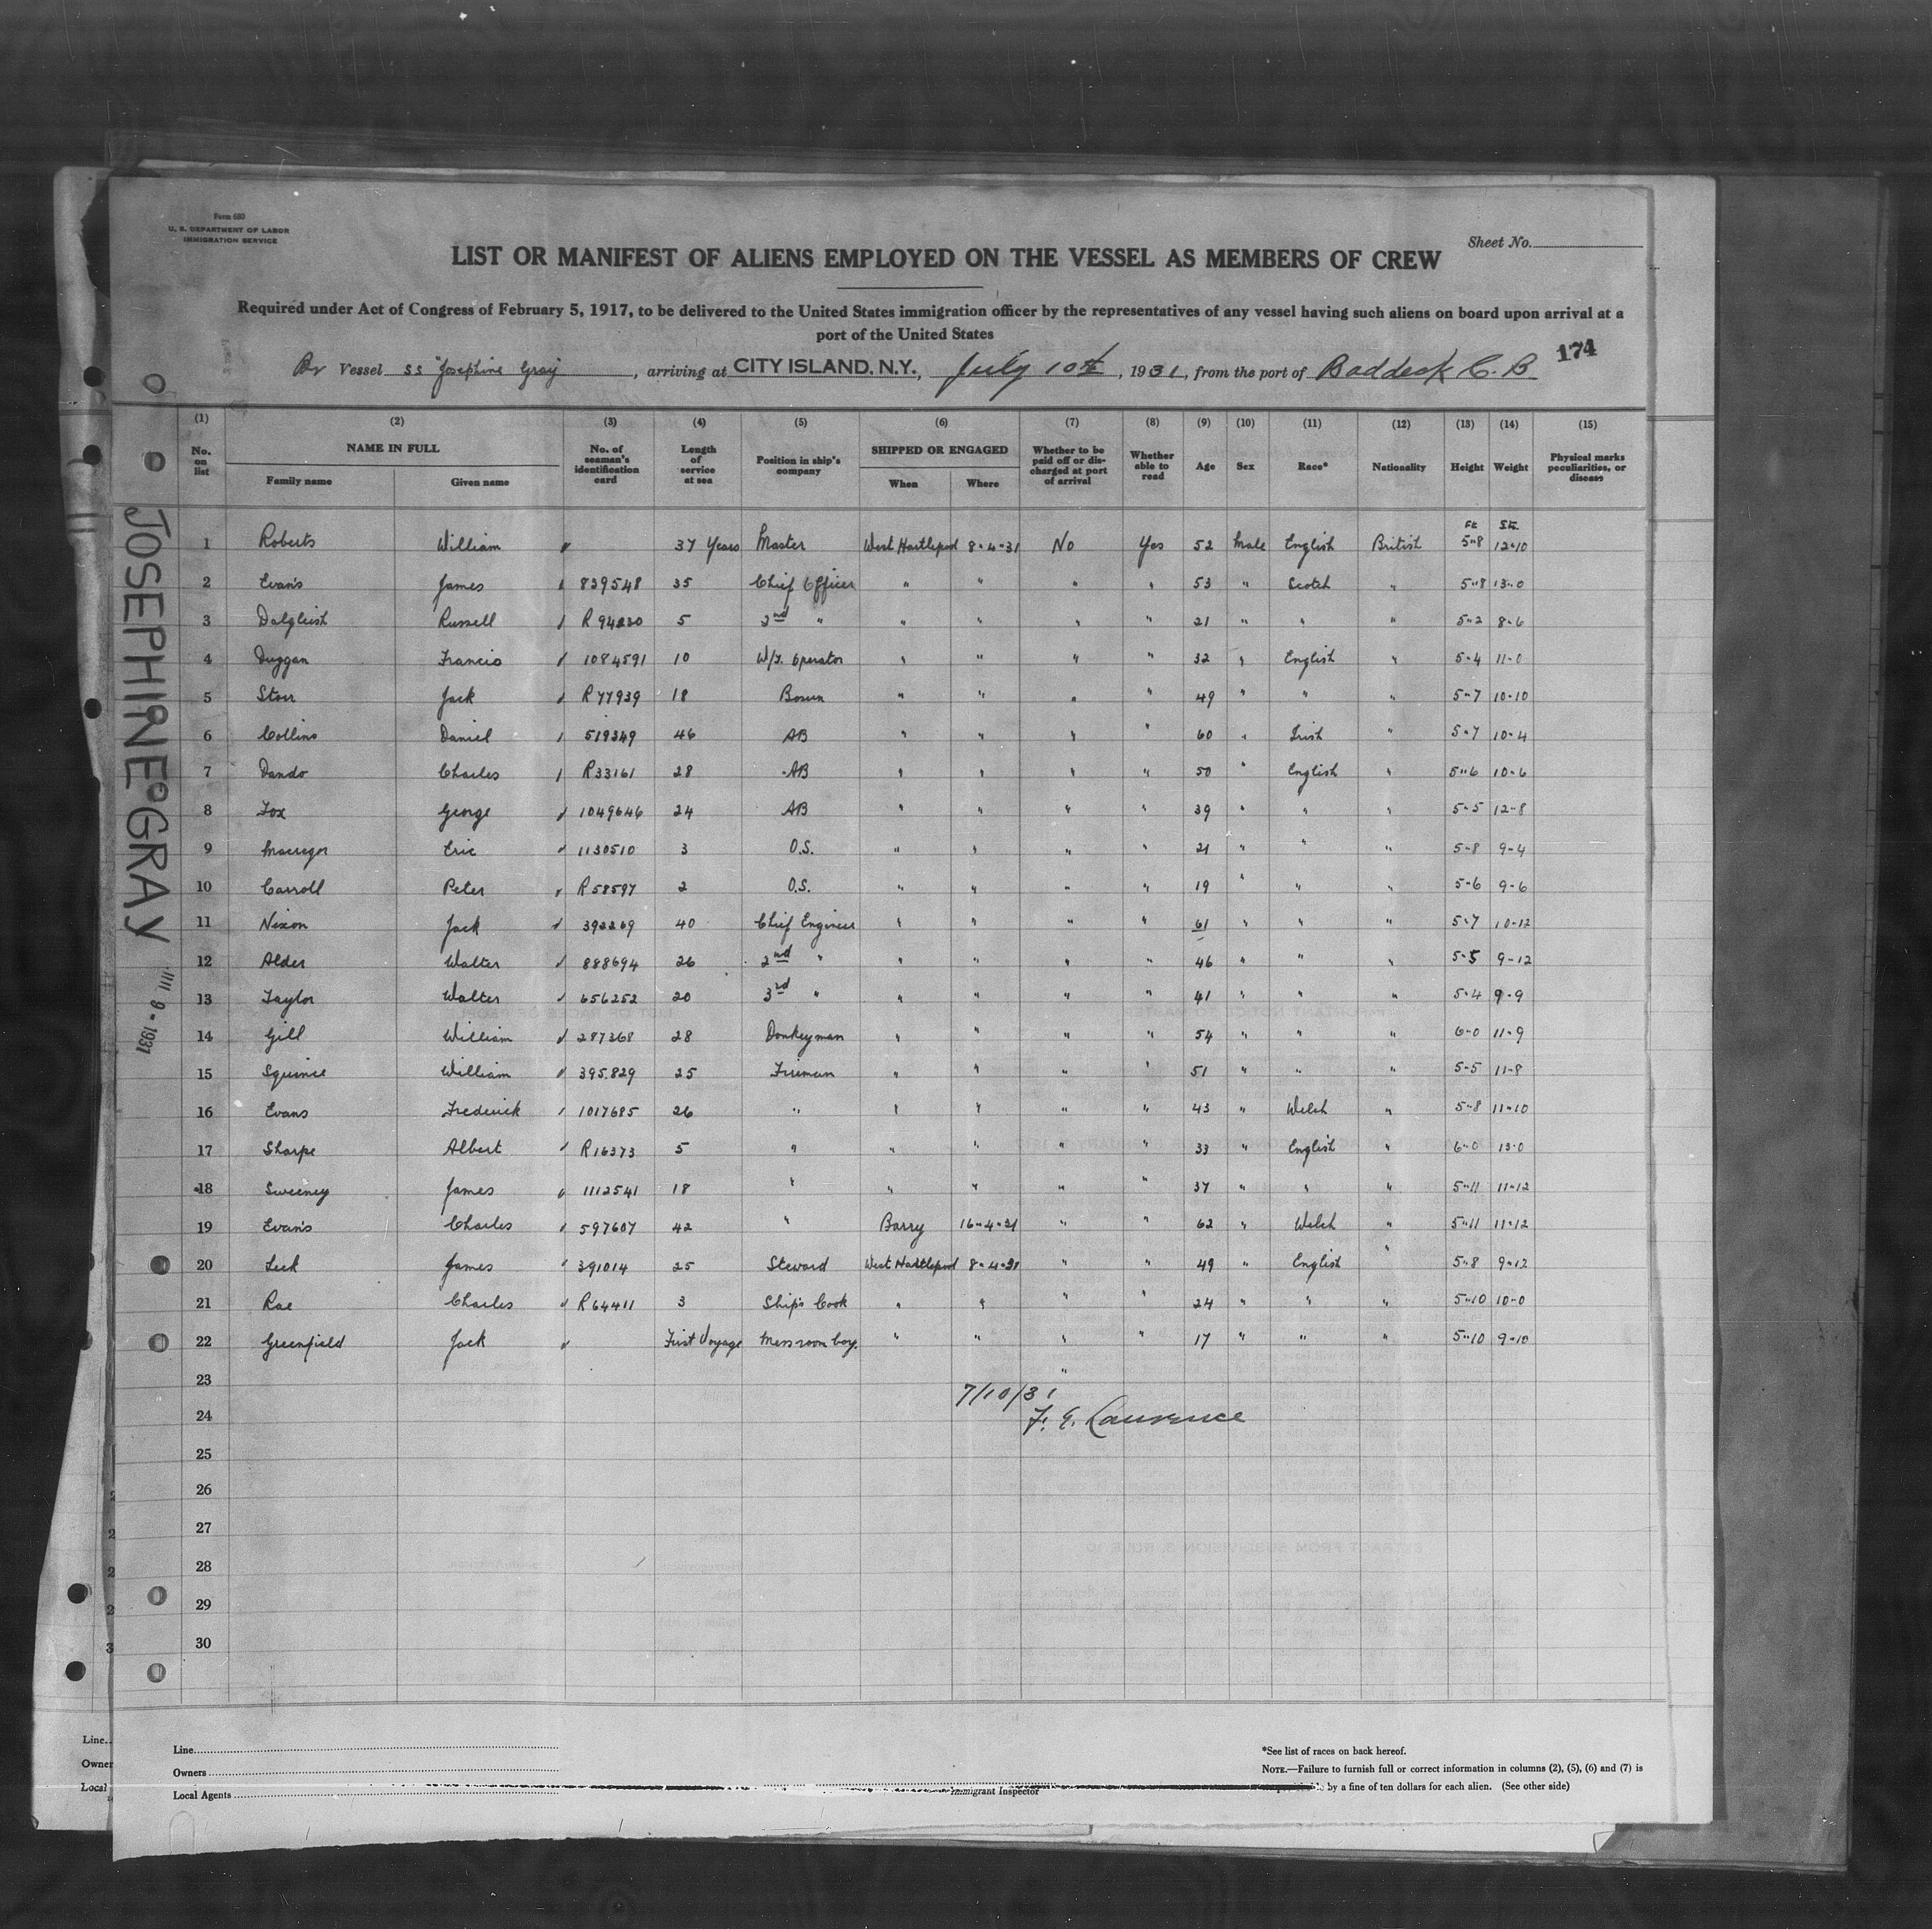 Form 680
U. S. DEPARTMENT OF LABOR
IMMIGRATION SERVICE
Sheet No.
LIST OR MANIFEST OF ALIENS EMPLOYED ON THE VESSEL AS MEMBERS OF CREW
Required under Act of Congress of February 5, 1917, to be delivered to the United States immigration officer by the representatives of any vessel having such aliens on board upon arrival at a
port of the United States
174
Br Vessel SS "Josephine Gray", arriving at CITY ISLAND, N.Y., July 10th, 1931, from the port of Baddeck C. B.
(1) (2) (3) (4) (5) (6) (7) (8) (9) (10) (11) (12) (13) (14) (15)
No. on list NAME IN FULL Family name Given name No. of seaman's identification card Length of service at sea Position in ship's company SHIPPED OR ENGAGED When Where Whether to be paid off or discharged at port of arrival Whether able to read Age Sex Race* Nationality Height Weight Physical marks peculiarities, or disease
Ft St.
1 Roberts William 37 Years Master West Hartlepool 8-4-31 No Yes 52 Male English British 5-8 12-10
2 Evan's James 839548 35 Chief Officer " " " " 53 " Scotch " 5-8 13-0
3 Dalgleish Russell 5 2nd " " " " " 21 " " " 5-2 8-6
4 Duggan Francis 1084591 10 W/T. Operator " " " " 32 " English " 5-4 11-0
5 Storr Jack R77939 18 Bosun " " " " 49 " " " 5-7 10-10
6 Collins Daniel 519349 46 AB " " " " 60 " Irish " 5-7 10-4
7 Dando Charles R33161 28 AB " " " " 50 " English " 5-6 10-6
8 Fox George 1049646 24 AB " " " " 39 " " " 5-5 12-8
9 Macregor Eric 1130510 3 O.S. " " " " 21 " " " 5-8 9-4
10 Carroll Peter R58597 2 O.S. " " " " 19 " " " 5-6 9-6
11 Nixon Jack 392269 40 Chief Engineer " " " " 61 " " " 5-7 10-12
12 Alder Walter 888694 26 2nd " " " " " 46 " " " 5-5 9-12
13 Taylor Walter 656252 20 3rd " " " " " 41 " " " 5-4 9-9
14 Gill William 287368 28 Donkeyman " " " " 54 " " " 6-0 11-9
15 Squince William 395829 25 Fireman " " " " 51 " " " 5-5 11-8
16 Evans Frederick 1017685 26 " " " " " 43 " Welch " 5-8 11-10
17 Sharpe Albert R16373 5 " " " " " 33 " English " 6-0 13-0
18 Sweeney James 1112541 18 " " " " " 37 " " " 5-11 11-12
19 Evan's Charles 597607 42 " Barry 16-4-31 " " 62 " Welch " 5-11 11-12
20 Leek James 391014 25 Steward West Hartlepool 8-4-31 " " 49 " English " 5-8 9-12
21 Rae Charles R64411 3 Ship's Cook " " " " 24 " " " 5-10 10-0
22 Greenfield Jack First Voyage Messroom boy. " " " " 17 " " " 5-10 9-10
23 "
7/10/31
24 F. E. Lawrence
25
26
27
28
29
30
JOSEPHINE GRAY
9-1931
Line
Owners
Local Agents
Immigrant Inspector
*See list of races on back hereof.
NOTE.—Failure to furnish full or correct information in columns (2), (5), (6) and (7) is
by a fine of ten dollars for each alien. (See other side)
Line
Owner
Local